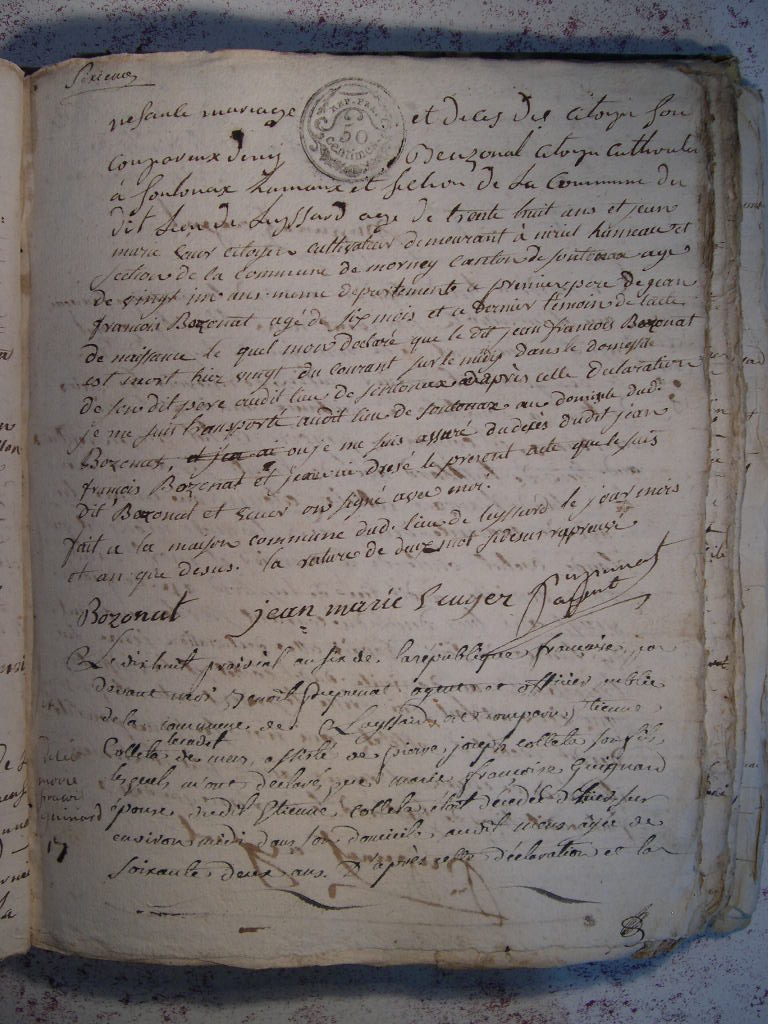 Sixieme
nesance mariage et deces des citoyen son
compareux denij Bouzonat citoyen culthivateur
à soutonax hamaux et section de la Commune du
dit lieu de Leyssard age de trente huit ans et jean
marie Euver citoijen cultivateur demeurant à niriel hanneau et
section de la commune de mornay canton de soutonax age
de vingt un ans meme departements a premier pere de jean
françois Bozonat agé de six mois et a dernier temoin de lacte
de naissance le quel mon declaré que le dit jean francois Bozonat
est mort hier vingt du courant sur le midy dans le domesille
de son dit pere audit lieu de soutonax daprès celle declaration
je me suis transporté audit lieu de soutonax au domicile dud.
Bozonat, et jen ai ou je me suis assuré du deces dudit jean
françois Bozonat et jean ai dresé le present acte que le suis
dit Bozonat et Euver on signé avec moi.
fait a la maison commune dud. lieu de leyssard le jour mois
et an que desus. la rature de deux mot si desus rapreuve
Bozonat jean marie Euvyer
agent
Le dix huit prairial an six de la republique francaise, par
devant moi Benoît Dupunat agent et officier public
de la commune de Leyssard, est comparu, Etienne
Collete benoist de mens, assisté de pierre joseph collete son fils,
lesquels m'ont déclaré, que marie francoise Guignard
épouse dudit Etienne collete, étoit décédée d'hier, sur
environ midi dans son domicile audit mens agée de
soixante deux ans. D'après celle déclaration et la
Décé
marie
franci
Guinard
17